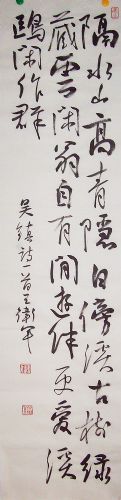 隔水山高青隱日傍溪古樹綠
藏雲閑翁自有閒遊伴更愛溪
鷗閑作群
吳鎮詩 首王衛軍